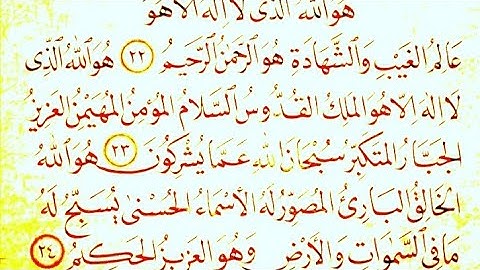 هُوَ اللهُ الَّذِى لَا اِلٰهَ اِلَّا هُوَ
عَالِمُ الْغَيْبِ وَالشَّهَادَةِ هُوَ الرَّحْمٰنُ الرَّحِيمُ ٢٢ هُوَ اللهُ الَّذِى
لَا اِلٰهَ اِلَّا هُوَ الْمَلِكُ الْقُدُّوسُ السَّلَامُ الْمُؤْمِنُ الْمُهَيْمِنُ الْعَزِيزُ
الْجَبَّارُ الْمُتَكَبِّرُ سُبْحَانَ اللهِ عَمَّا يُشْرِكُونَ ٢٣ هُوَ اللهُ
الْخَالِقُ الْبَارِئُ الْمُصَوِّرُ لَهُ الْاَسْمَاءُ الْحُسْنٰى يُسَبِّحُ لَهُ
مَا فِى السَّمٰوَاتِ وَالْاَرْضِ وَهُوَ الْعَزِيزُ الْحَكِيمُ ٢٤